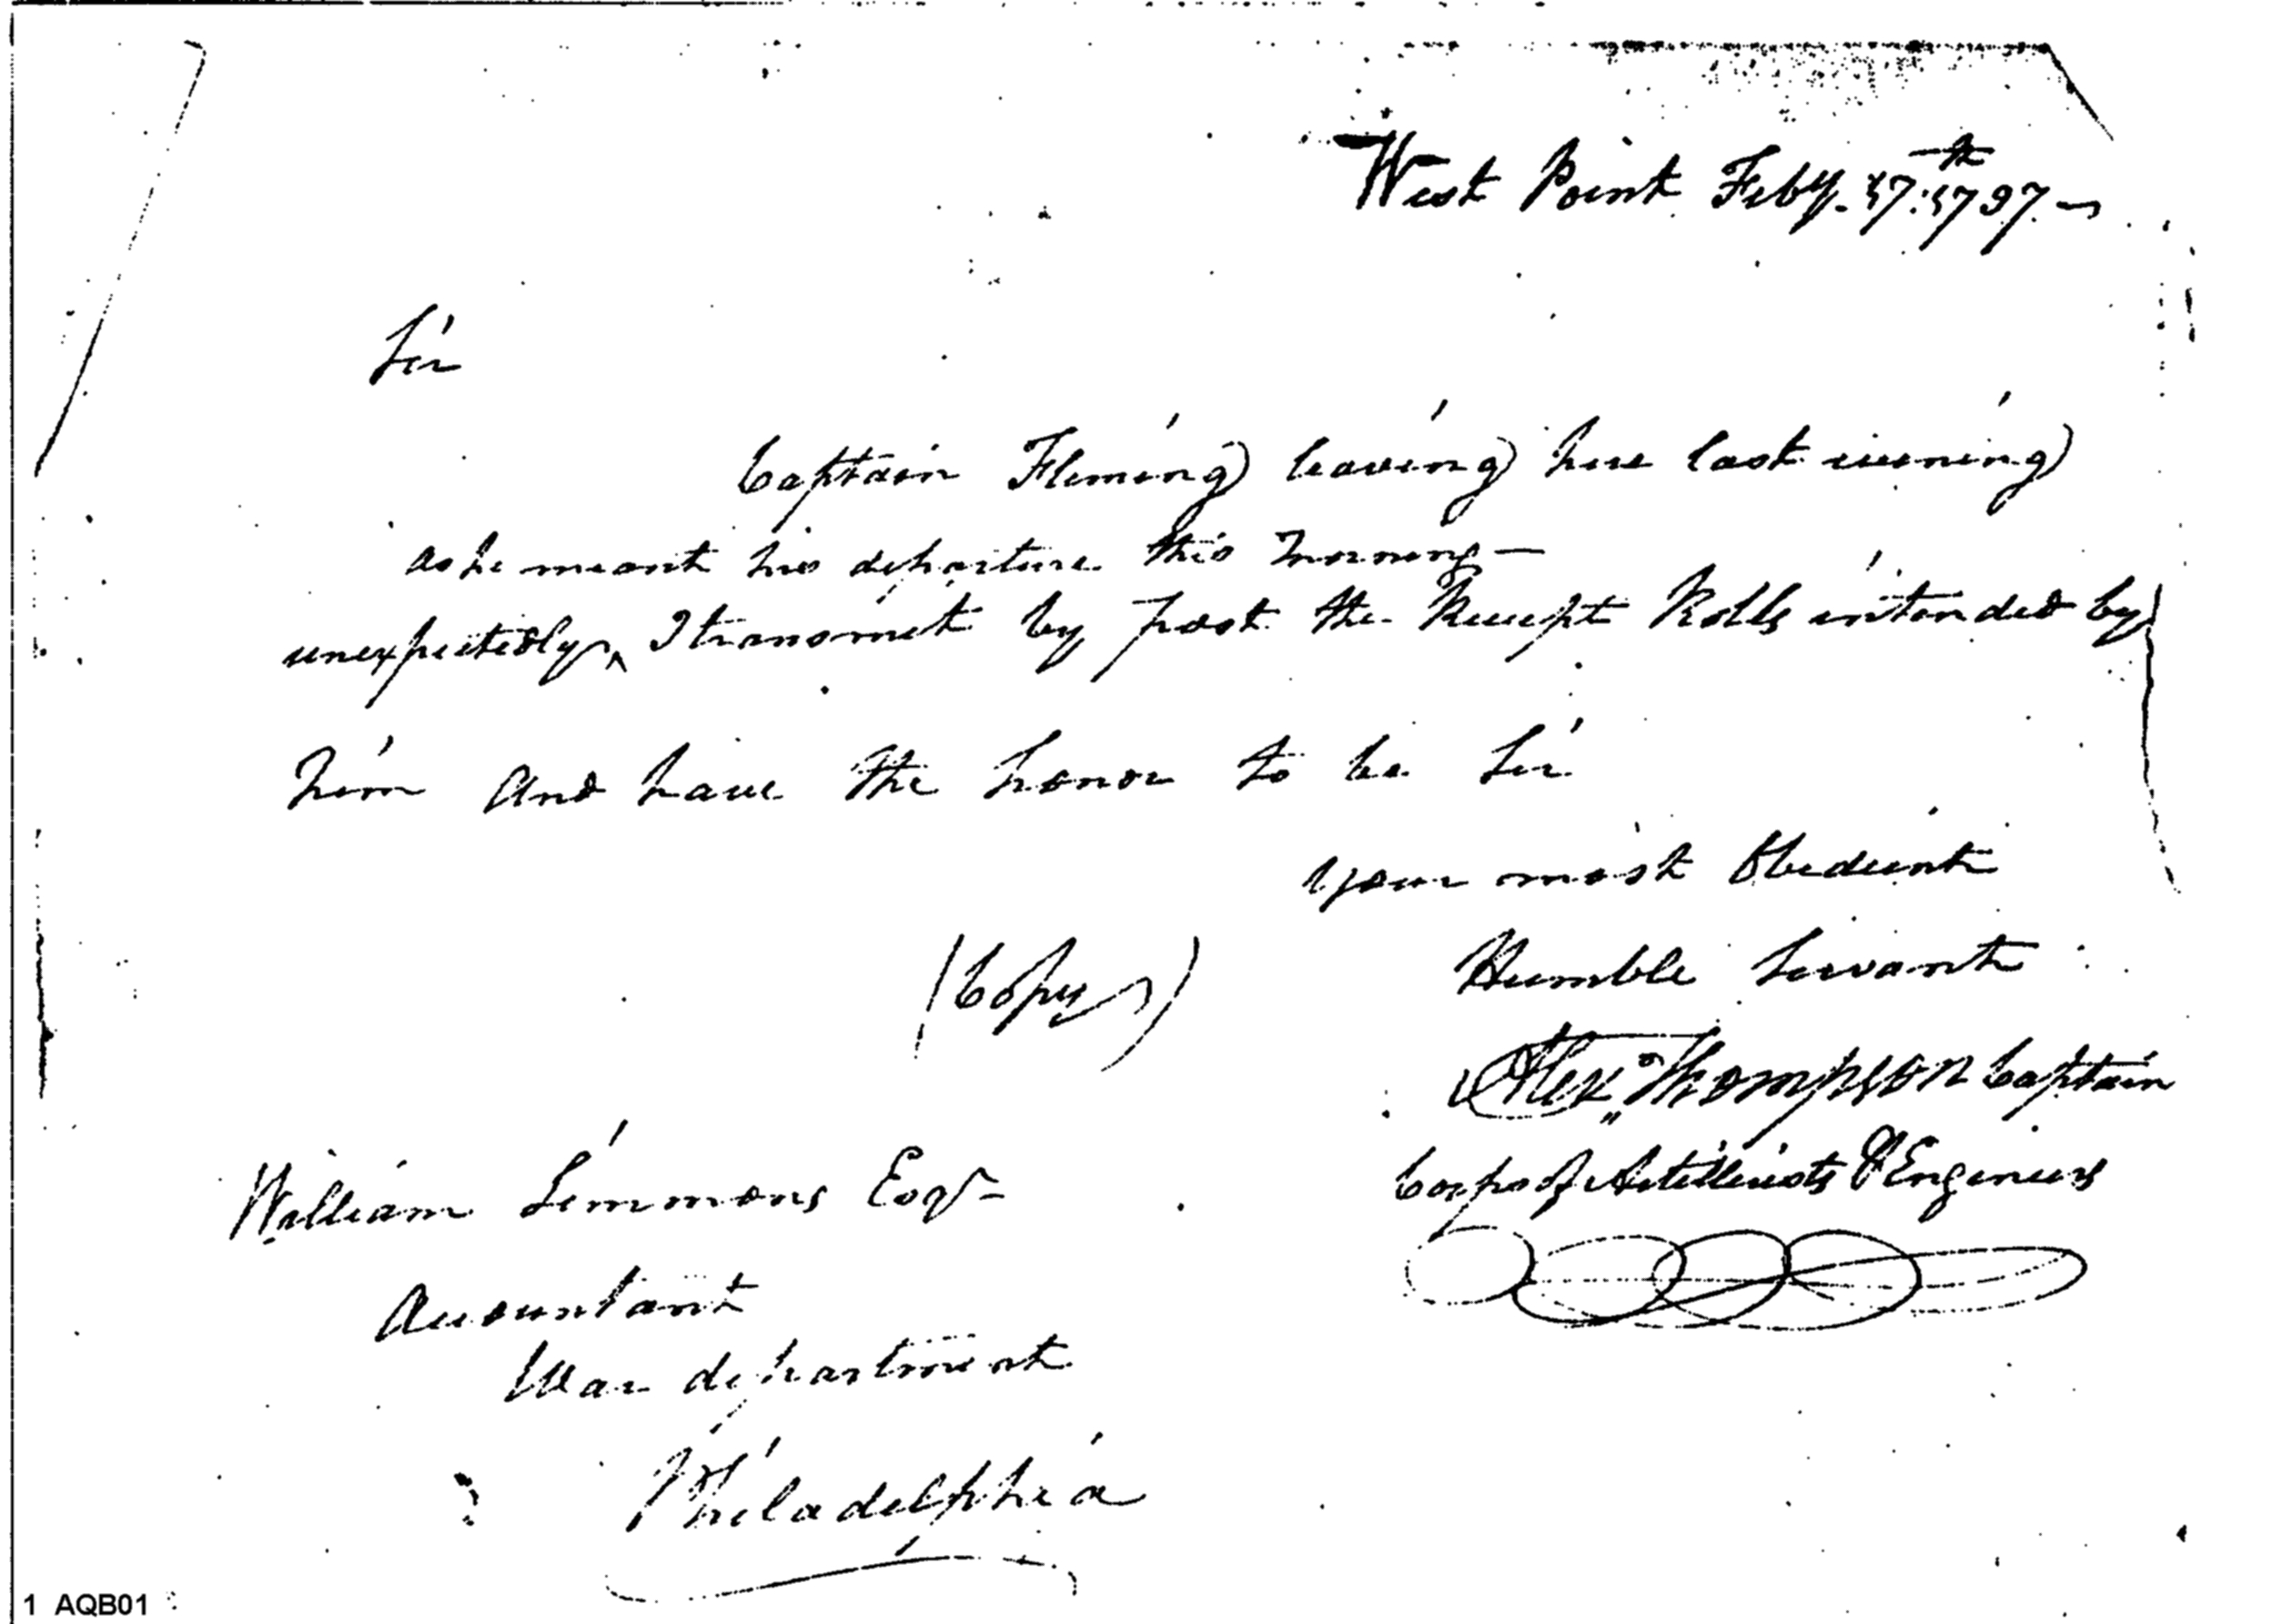 West Point Feby. 17th. 1797
Sir
Captain Fleming leaving here last evening
as he meant his departure this morning—
unexpectedly ^ I transmit by post the Receipt Rolls intended by
him and have the honor to be Sir
your most Obedient
Humble Servant
(Copy)
Alexr Thompson Captain
Corps of Artillerists & Engineers
William Simmons Esqr
Accountant
War department
Philadelphia
1 AQB01